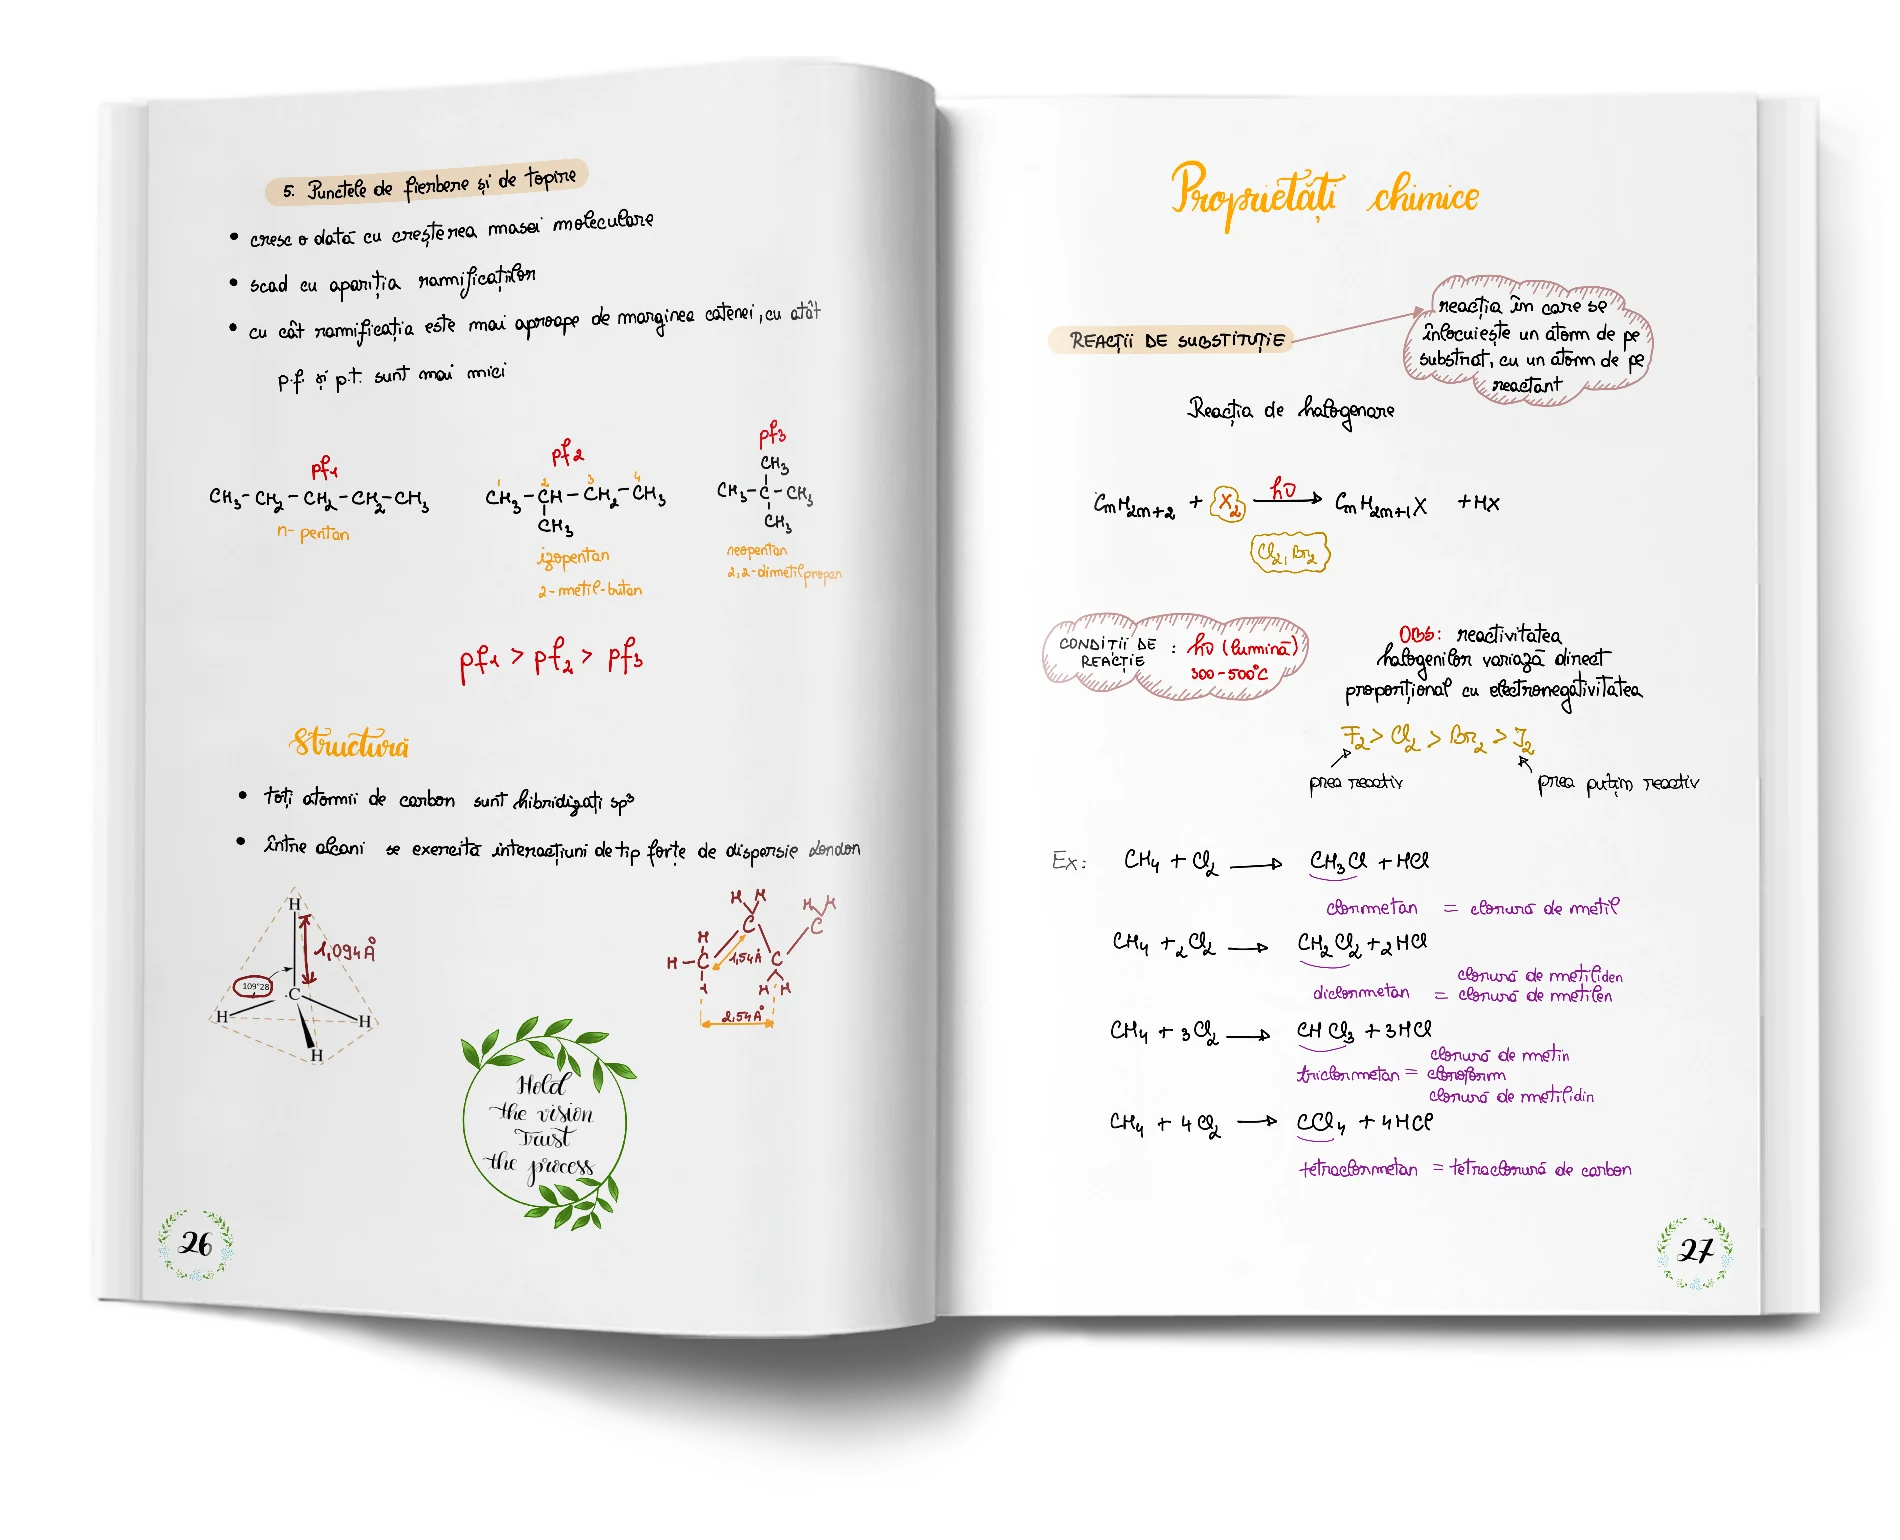 5. Punctele de fierbere și de topire
• cresc o dată cu creșterea masei moleculare
• scad cu apariția ramificațiilor
• cu cât ramificația este mai aproape de marginea catenei, cu atât
p.f. și p.t. sunt mai mici
pf1
CH3-CH2-CH2-CH2-CH3
n-pentan
pf2
1 2 3 4
CH3-CH-CH2-CH3
CH3
izopentan
2-metil-butan
pf3
CH3
CH3-C-CH3
CH3
neopentan
2,2-dimetilpropan
pf1 > pf2 > pf3
Structură
• toți atomii de carbon sunt hibridizați sp³
• între alcani se exercită interacțiuni de tip forțe de dispersie London
H
1,094Å
109°28
C
H
H
H
H H
H H
C
C
H
H-C
1,54Å
C
H
H H
2,54Å
Hold
the vision
Trust
the process
26
Proprietăți chimice
REACȚII DE SUBSTITUȚIE
reacția în care se
înlocuiește un atom de pe
substrat, cu un atom de pe
reactant
Reacția de halogenare
CnH2n+2 + X2 hν → CnH2n+1X + HX
Cl2, Br2
CONDIȚII DE REACȚIE : hν (lumină)
300-500°C
OBS: reactivitatea
halogenilor variază direct
proporțional cu electronegativitatea
F2 > Cl2 > Br2 > I2
prea reactiv
prea puțin reactiv
Ex: CH4 + Cl2 → CH3Cl + HCl
clormetan = clorură de metil
CH4 + 2Cl2 → CH2Cl2 + 2HCl
clorură de metiliden
diclormetan = clorură de metilen
CH4 + 3Cl2 → CHCl3 + 3HCl
clorură de metin
triclormetan = cloroform
clorură de metilidin
CH4 + 4Cl2 → CCl4 + 4HCl
tetraclormetan = tetraclorură de carbon
27